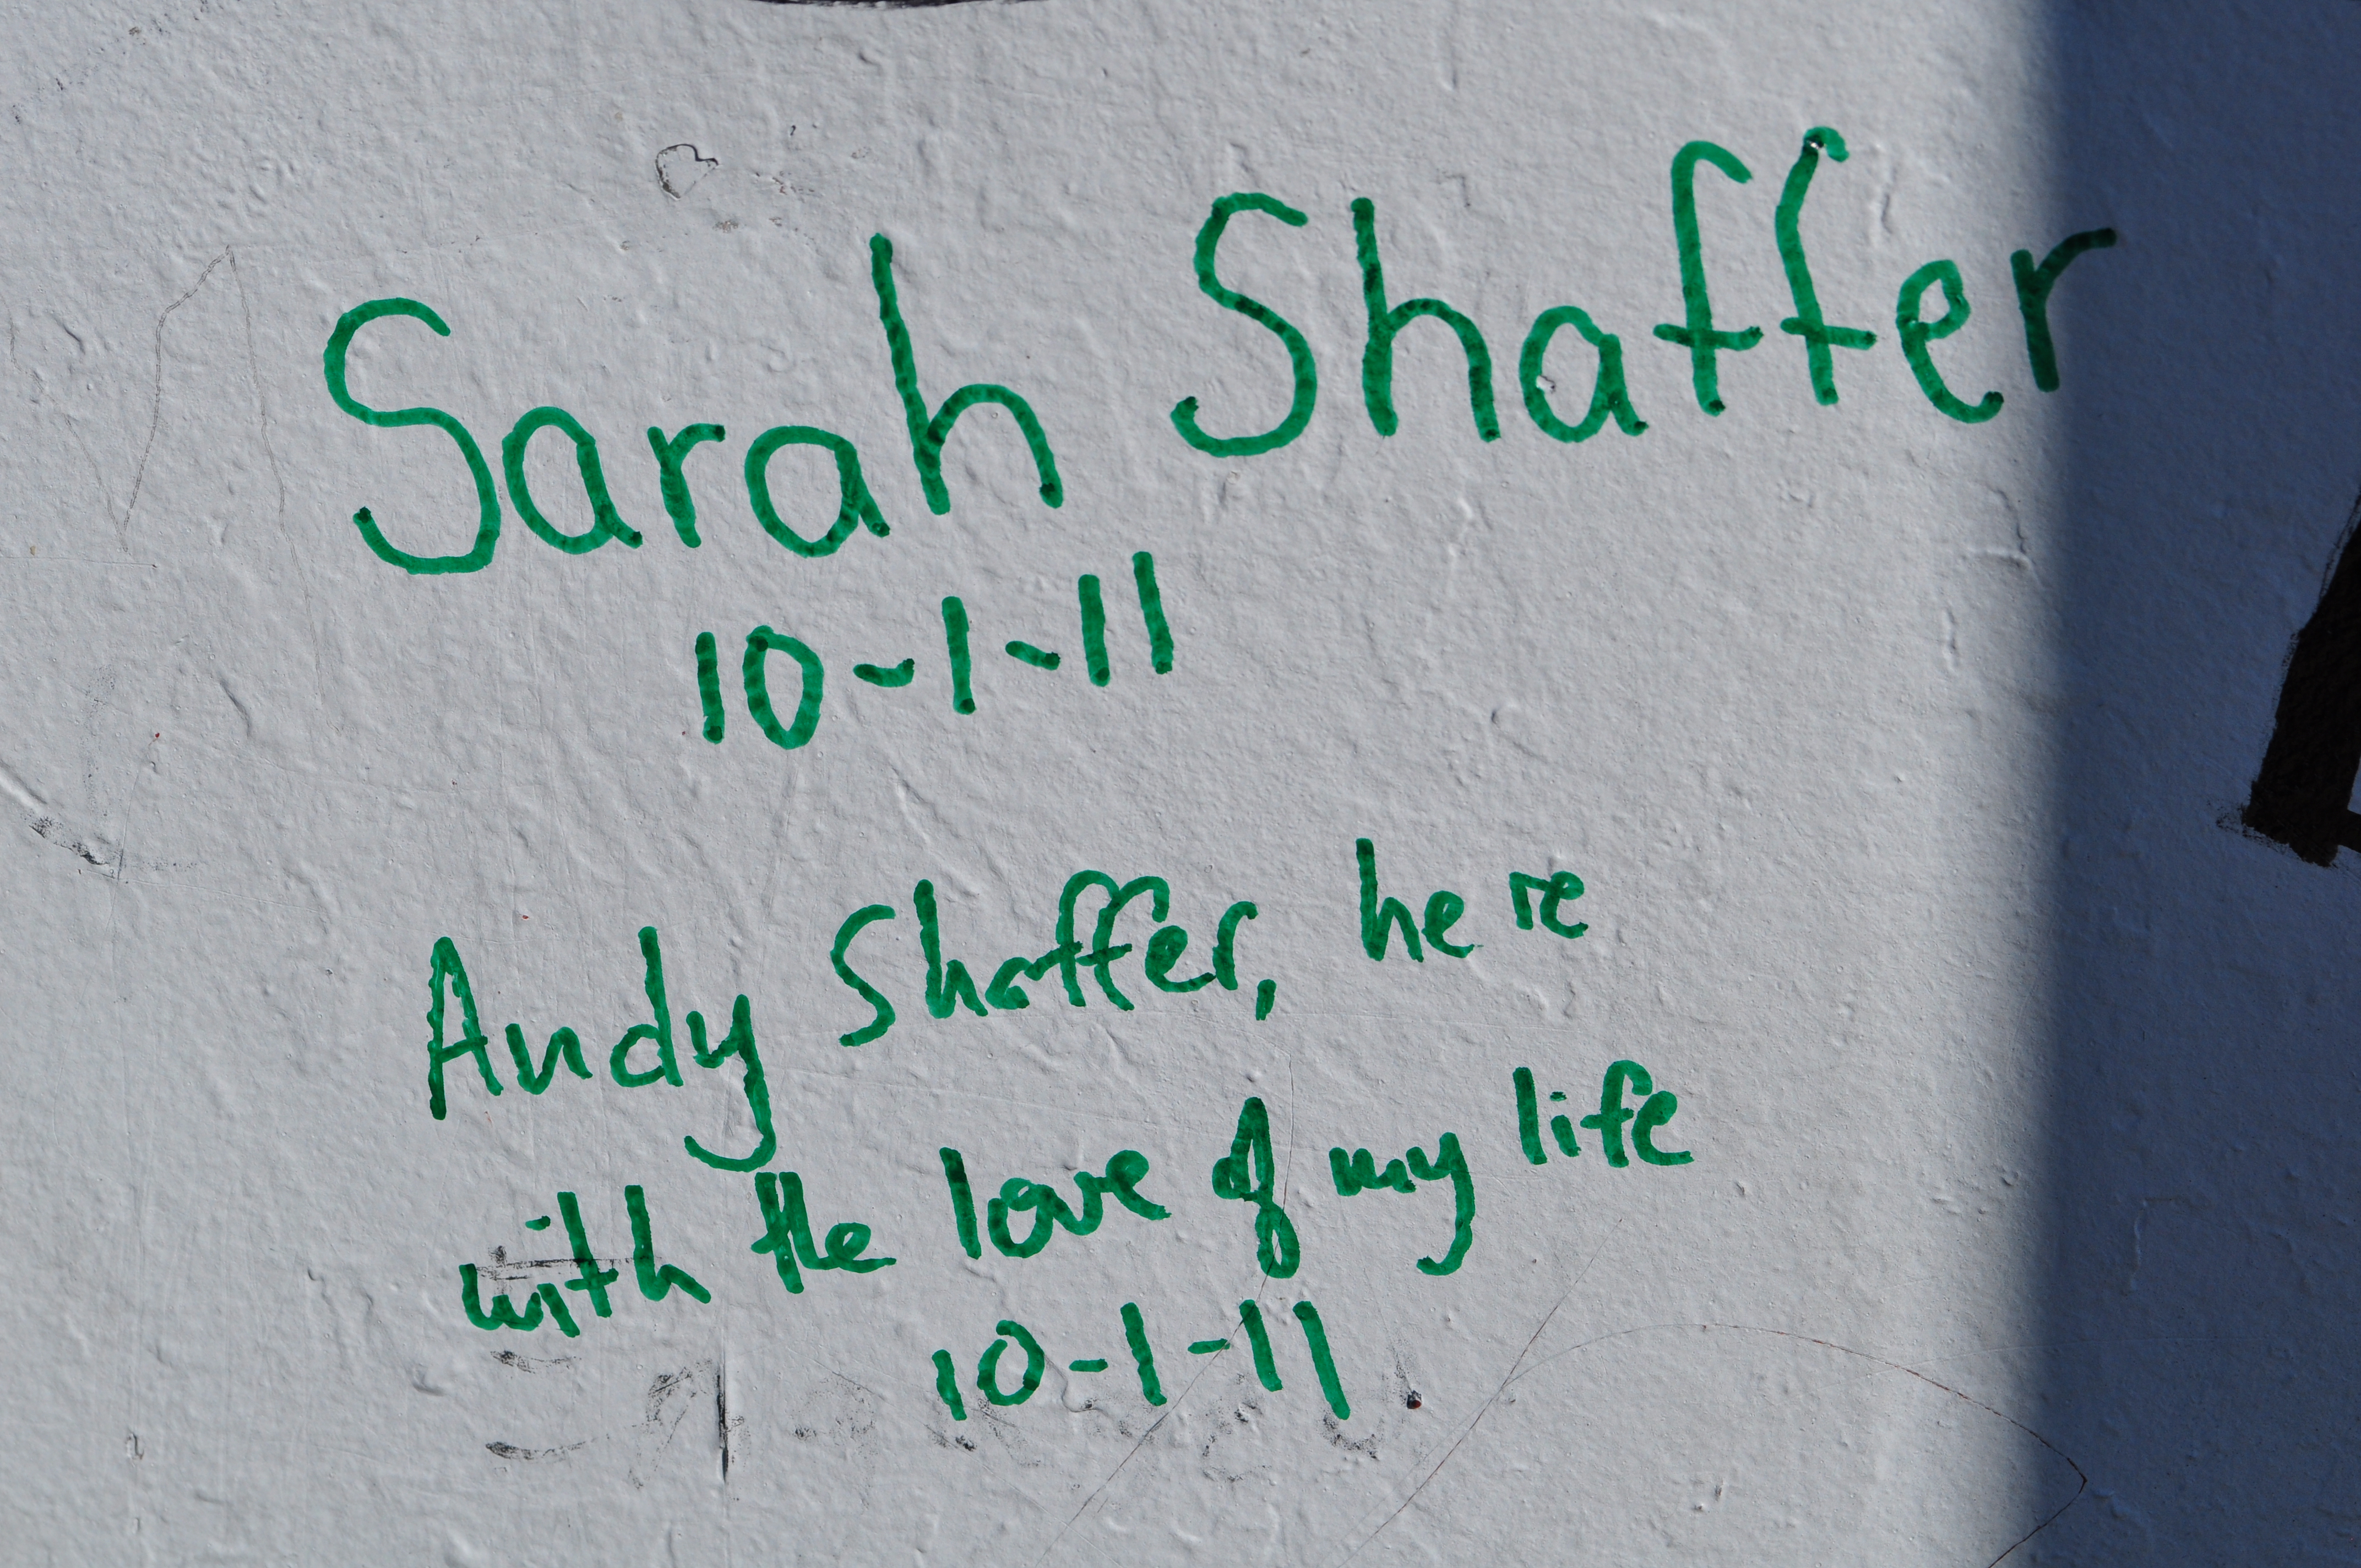 Sarah Shaffer
10-1-11
Andy Shaffer, here
with the love of my life
10-1-11